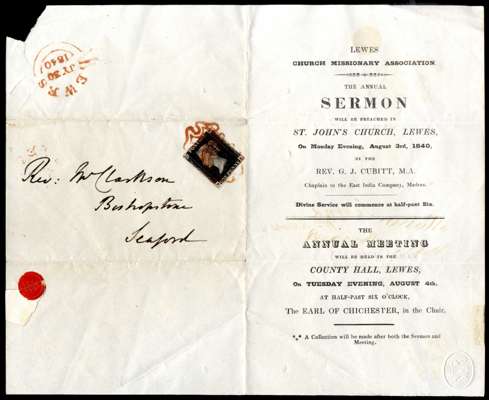 LEWES
JY 30
1840
Rev: Mr Clarkson
Bishopstone
Seaford
LEWES
CHURCH MISSIONARY ASSOCIATION
THE ANNUAL
SERMON
WILL BE PREACHED IN
ST. JOHN'S CHURCH, LEWES,
On Monday Evening, August 3rd, 1840,
BY THE
REV. G. J. CUBITT, M.A.
Chaplain to the East India Company, Madras.
Divine Service will commence at half-past Six.
THE
ANNUAL MEETING
WILL BE HELD IN THE
COUNTY HALL, LEWES,
On TUESDAY EVENING, AUGUST 4th,
AT HALF-PAST SIX O'CLOCK,
The EARL OF CHICHESTER, in the Chair.
*⁎* A Collection will be made after both the Sermon and
Meeting.